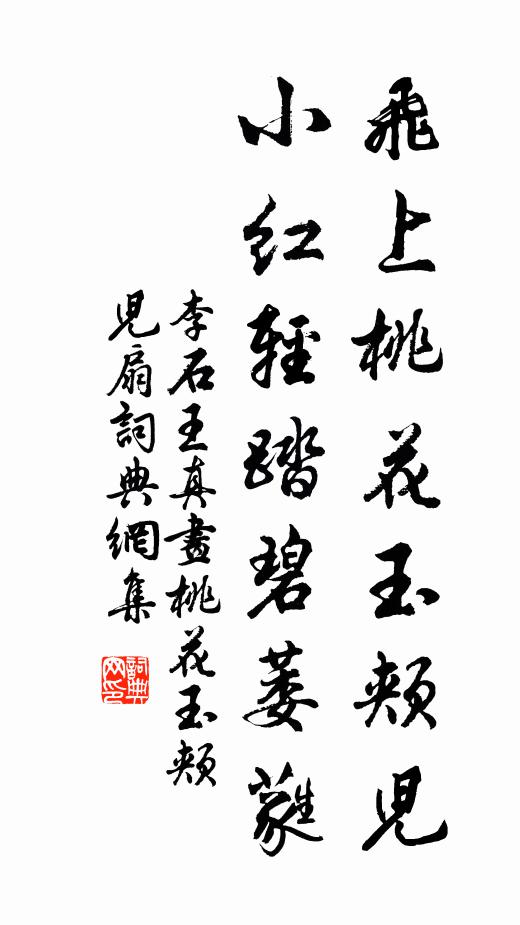 飛上桃花玉頰兒
小紅輕踏碧萎蕤
李石王真畫桃花玉頰
兒扇詞典網集
詞典
网印